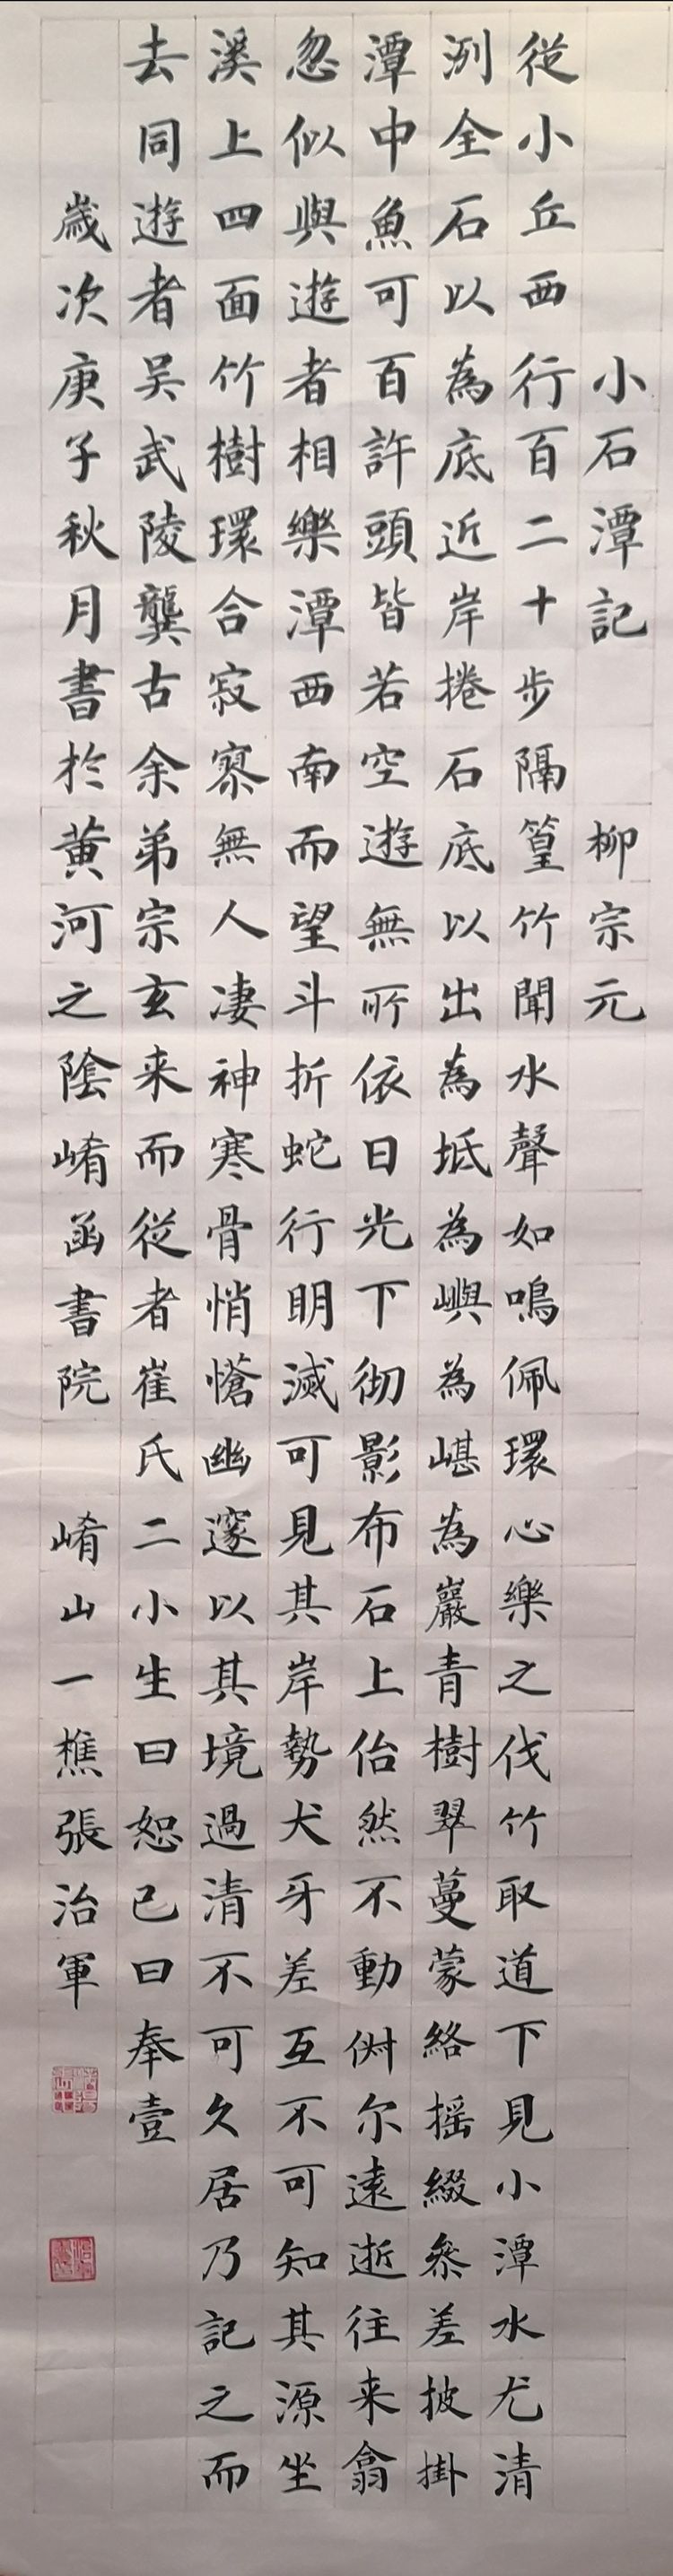 小石潭記 柳宗元
從小丘西行百二十步隔篁竹聞水聲如鳴佩環心樂之伐竹取道下見小潭水尤清
洌全石以為底近岸捲石底以出為坻為嶼為嵁為巖青樹翠蔓蒙絡搖綴參差披掛
潭中魚可百許頭皆若空遊無所依日光下彻影布石上佁然不動俶尔遠逝往来翕
忽似與遊者相樂潭西南而望斗折蛇行明滅可見其岸勢犬牙差互不可知其源坐
溪上四面竹樹環合寂寥無人凄神寒骨悄愴幽邃以其境過清不可久居乃記之而
去同遊者吴武陵龔古余弟宗玄来而從者崔氏二小生曰恕己曰奉壹
歲次庚子秋月書於黄河之陰崤函書院 崤山一樵張治軍